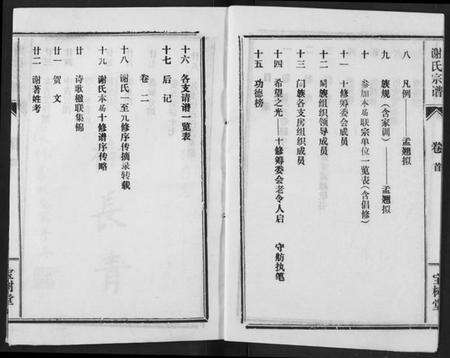 谢氏宗谱
卷首
宝树堂
八 凡例 孟翘拟
九 族规(含家训)——孟翘拟
十 参加本届联宗单位一览表(含倡修)
十一 十修筹委会成员
十二 阖族组织领导成员
十三 阖族各支房组织成员
十四 希望之光——十修筹委会老令人启 守舫执笔
十五 功德榜
十六 各支请谱一览表
十七 后记
卷二
十八 谢氏一至九修序传摘录转载
十九 谢氏本届十修谱序传略
廿 诗歌楹联集锦
廿一 贺文
廿二 谢著姓考
宝树堂